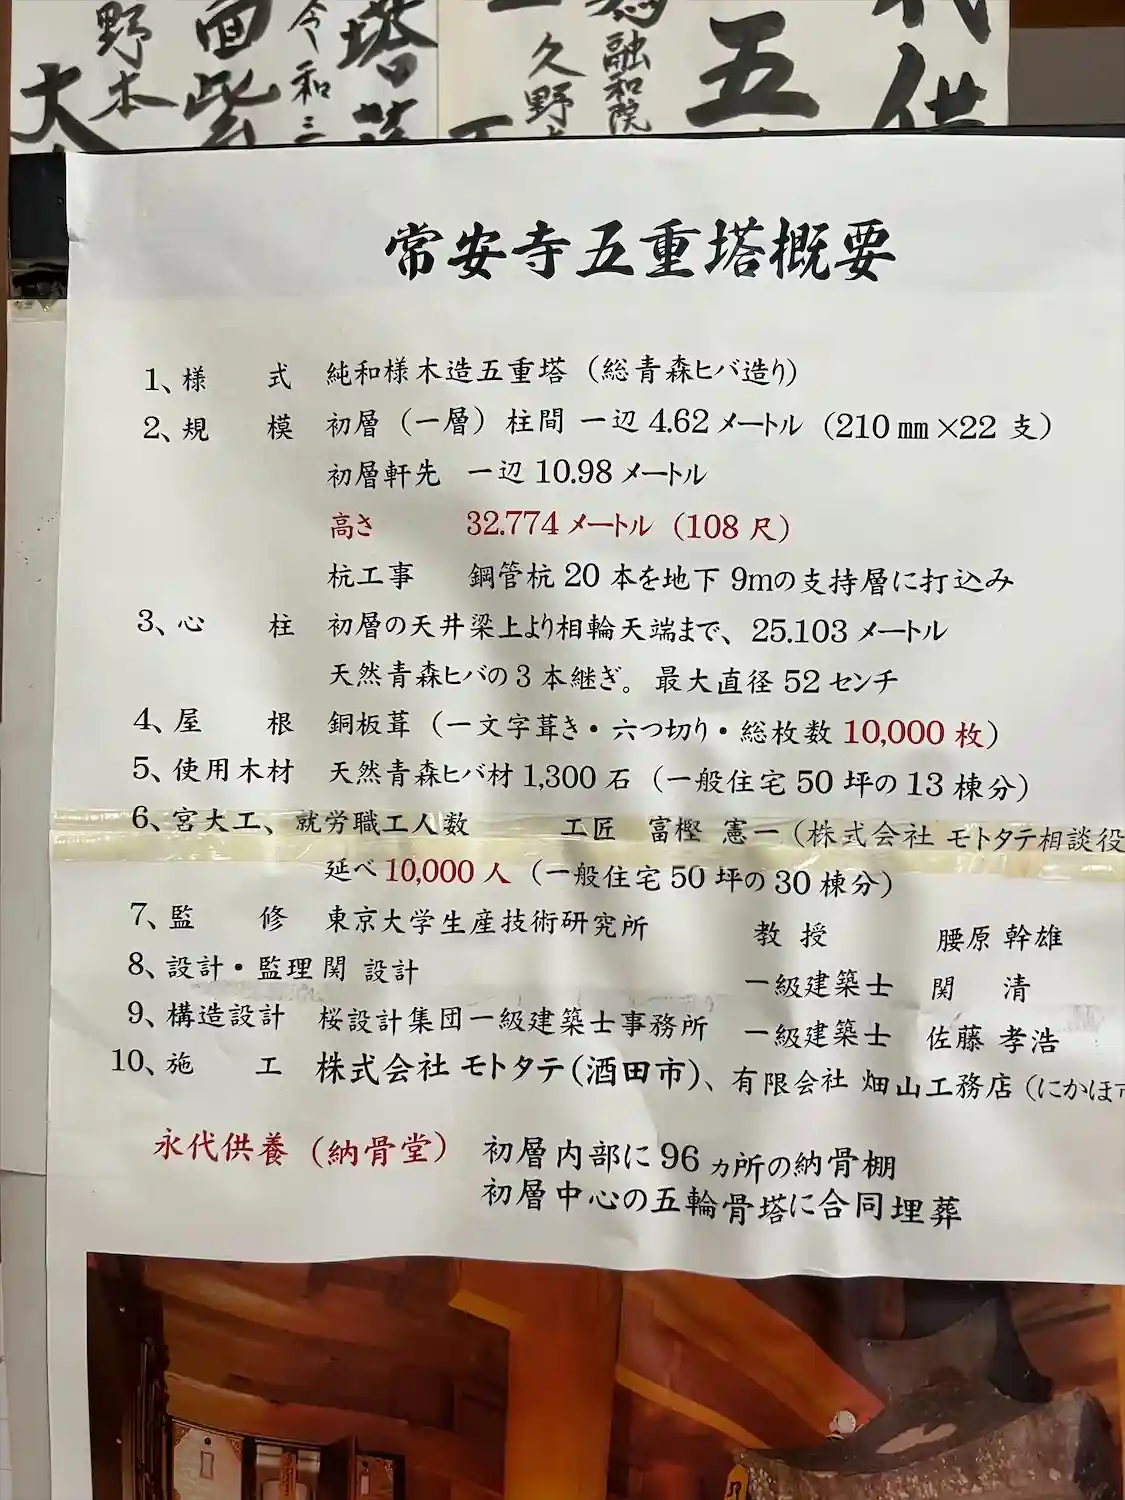 野本
面紫
令和三
塔
久野
融和院
五
供
常安寺五重塔概要
1、様　式　純和様木造五重塔（総青森ヒバ造り）
2、規　模　初層（一層）柱間 一辺 4.62 メートル（210 ㎜×22 支）
初層軒先　一辺 10.98 メートル
高さ　32.774 メートル（108 尺）
杭工事　鋼管杭 20 本を地下 9mの支持層に打込み
3、心　柱　初層の天井梁上より相輪天端まで、25.103 メートル
天然青森ヒバの 3 本継ぎ。最大直径 52 センチ
4、屋　根　銅板葺（一文字葺き・六つ切り・総枚数 10,000 枚）
5、使用木材　天然青森ヒバ材 1,300 石（一般住宅 50 坪の 13 棟分）
6、宮大工、就労職工人数　工匠　富樫 憲一（株式会社 モトタテ相談役
延べ 10,000 人（一般住宅 50 坪の 30 棟分）
7、監　修　東京大学生産技術研究所　教 授　腰原 幹雄
8、設計・監理 関 設計　一級建築士　関　清
9、構造設計　桜設計集団一級建築士事務所　一級建築士　佐藤 孝浩
10、施　工　株式会社 モトタテ（酒田市）、有限会社 畑山工務店（にかほ市
永代供養（納骨堂）　初層内部に 96 ヵ所の納骨棚
初層中心の五輪骨塔に合同埋葬